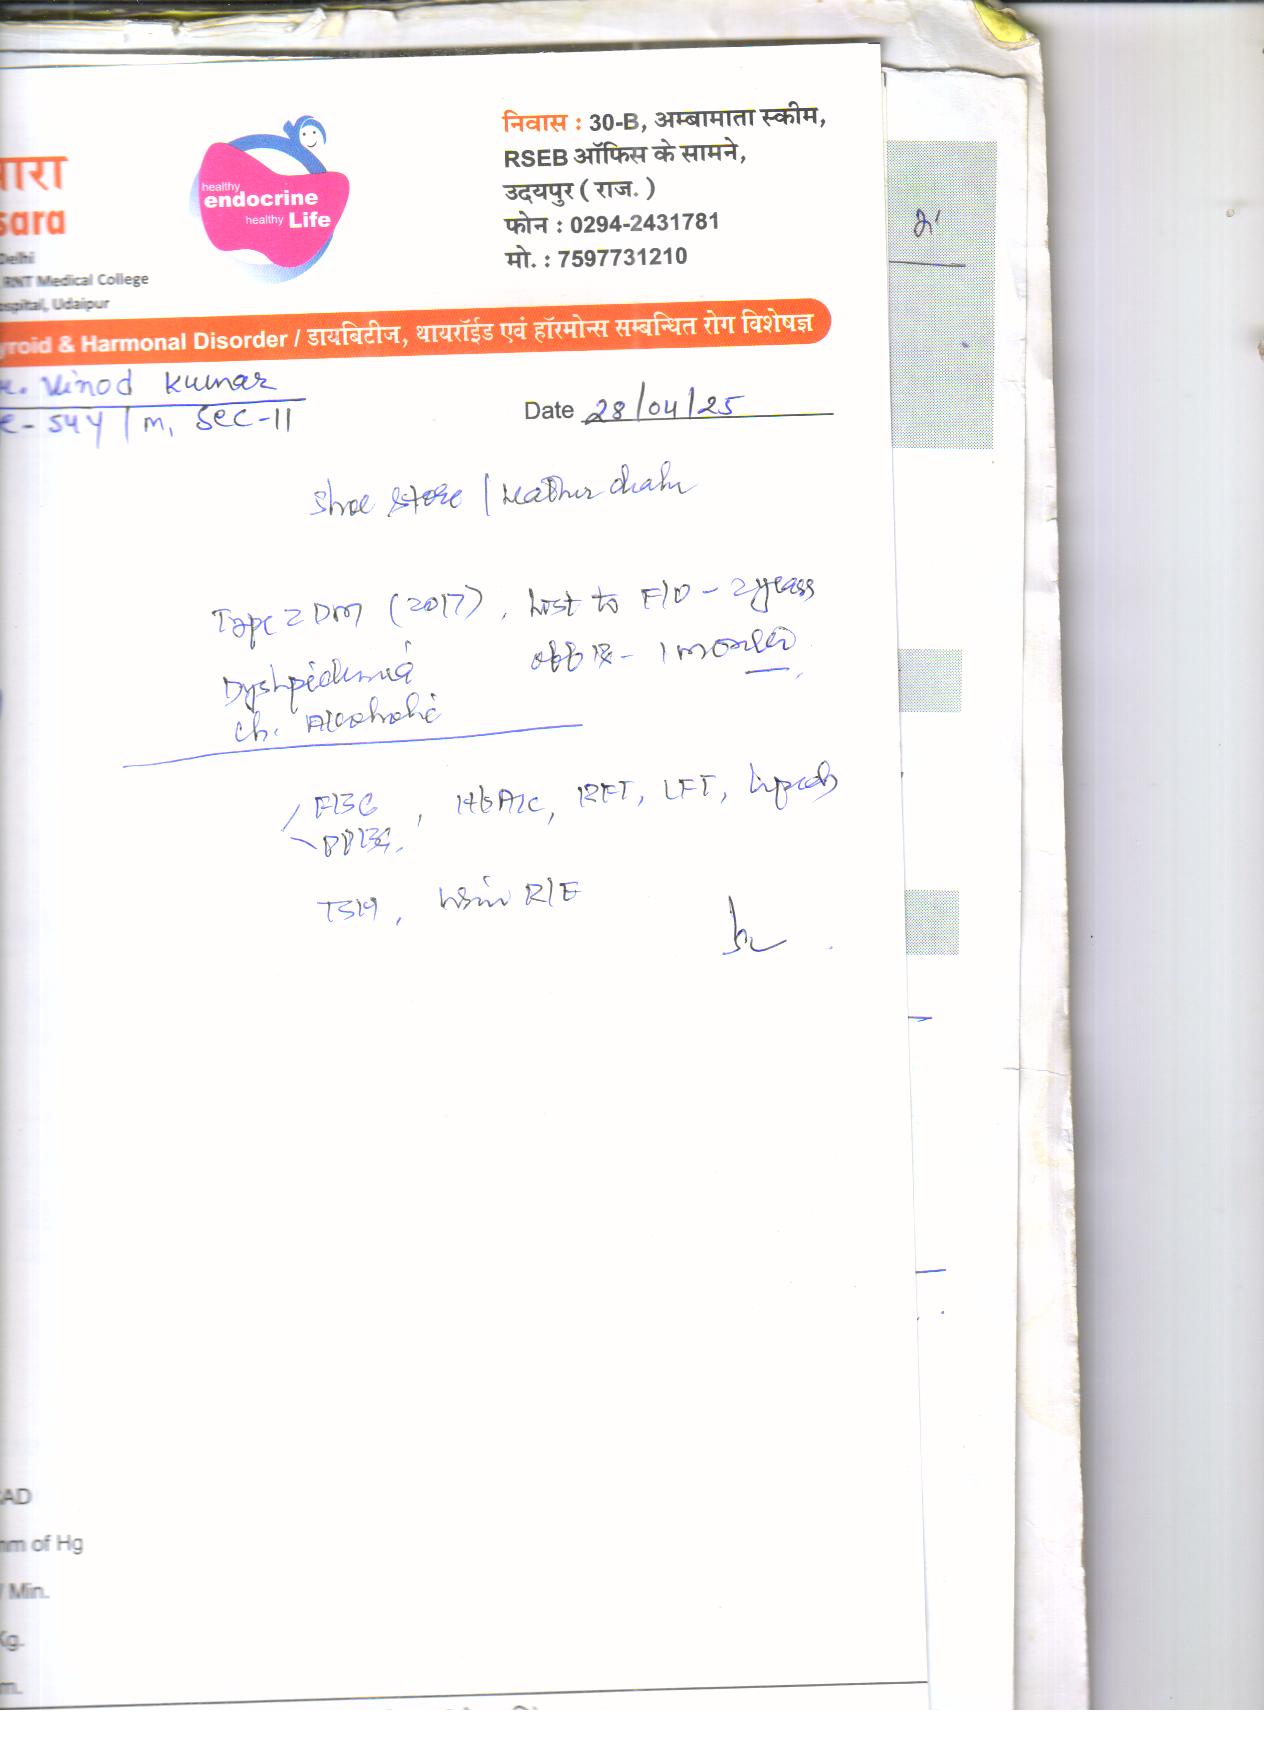 ारा
sara
Delhi
RNT Medical College
ospital, Udaipur
healthy
endocrine
healthy Life
निवास : 30-B, अम्बामाता स्कीम,
RSEB ऑफिस के सामने,
उदयपुर ( राज. )
फोन : 0294-2431781
मो. : 7597731210
yroid & Harmonal Disorder / डायबिटीज, थायरॉईड एवं हॉरमोन्स सम्बन्धित रोग विशेषज्ञ
Vinod Kumar
e- 54y / m, Sec-11
Date 28/04/25
Shoe Store /
Type 2 DM (2017), lost to F/O - 2 years
Dyslipidemia off Rx - 1 month
Ch. Alcoholic
FBG, HbA1c, RFT, LFT, Lipids
PPBG,
TSH, Urine R/E
AD
mm of Hg
/ Min.
Kg.
m.